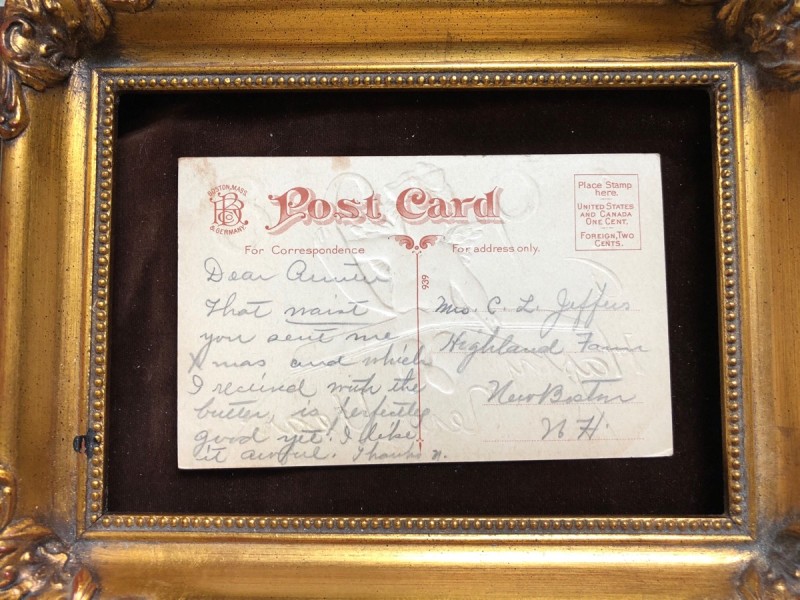 BOSTON, MASS.
B C Co
& GERMANY.
Post Card
Place Stamp
here.
UNITED STATES
AND CANADA
ONE CENT.
FOREIGN, TWO
CENTS.
For Correspondence
For address only.
939
Dear Auntie
That waist
you sent me
Xmas and which
I received with the
butter, is perfectly
good yet. I like
it awful. Thanks
Mrs. C. L. Jeffers
Highland Farm
New Boston
N H.